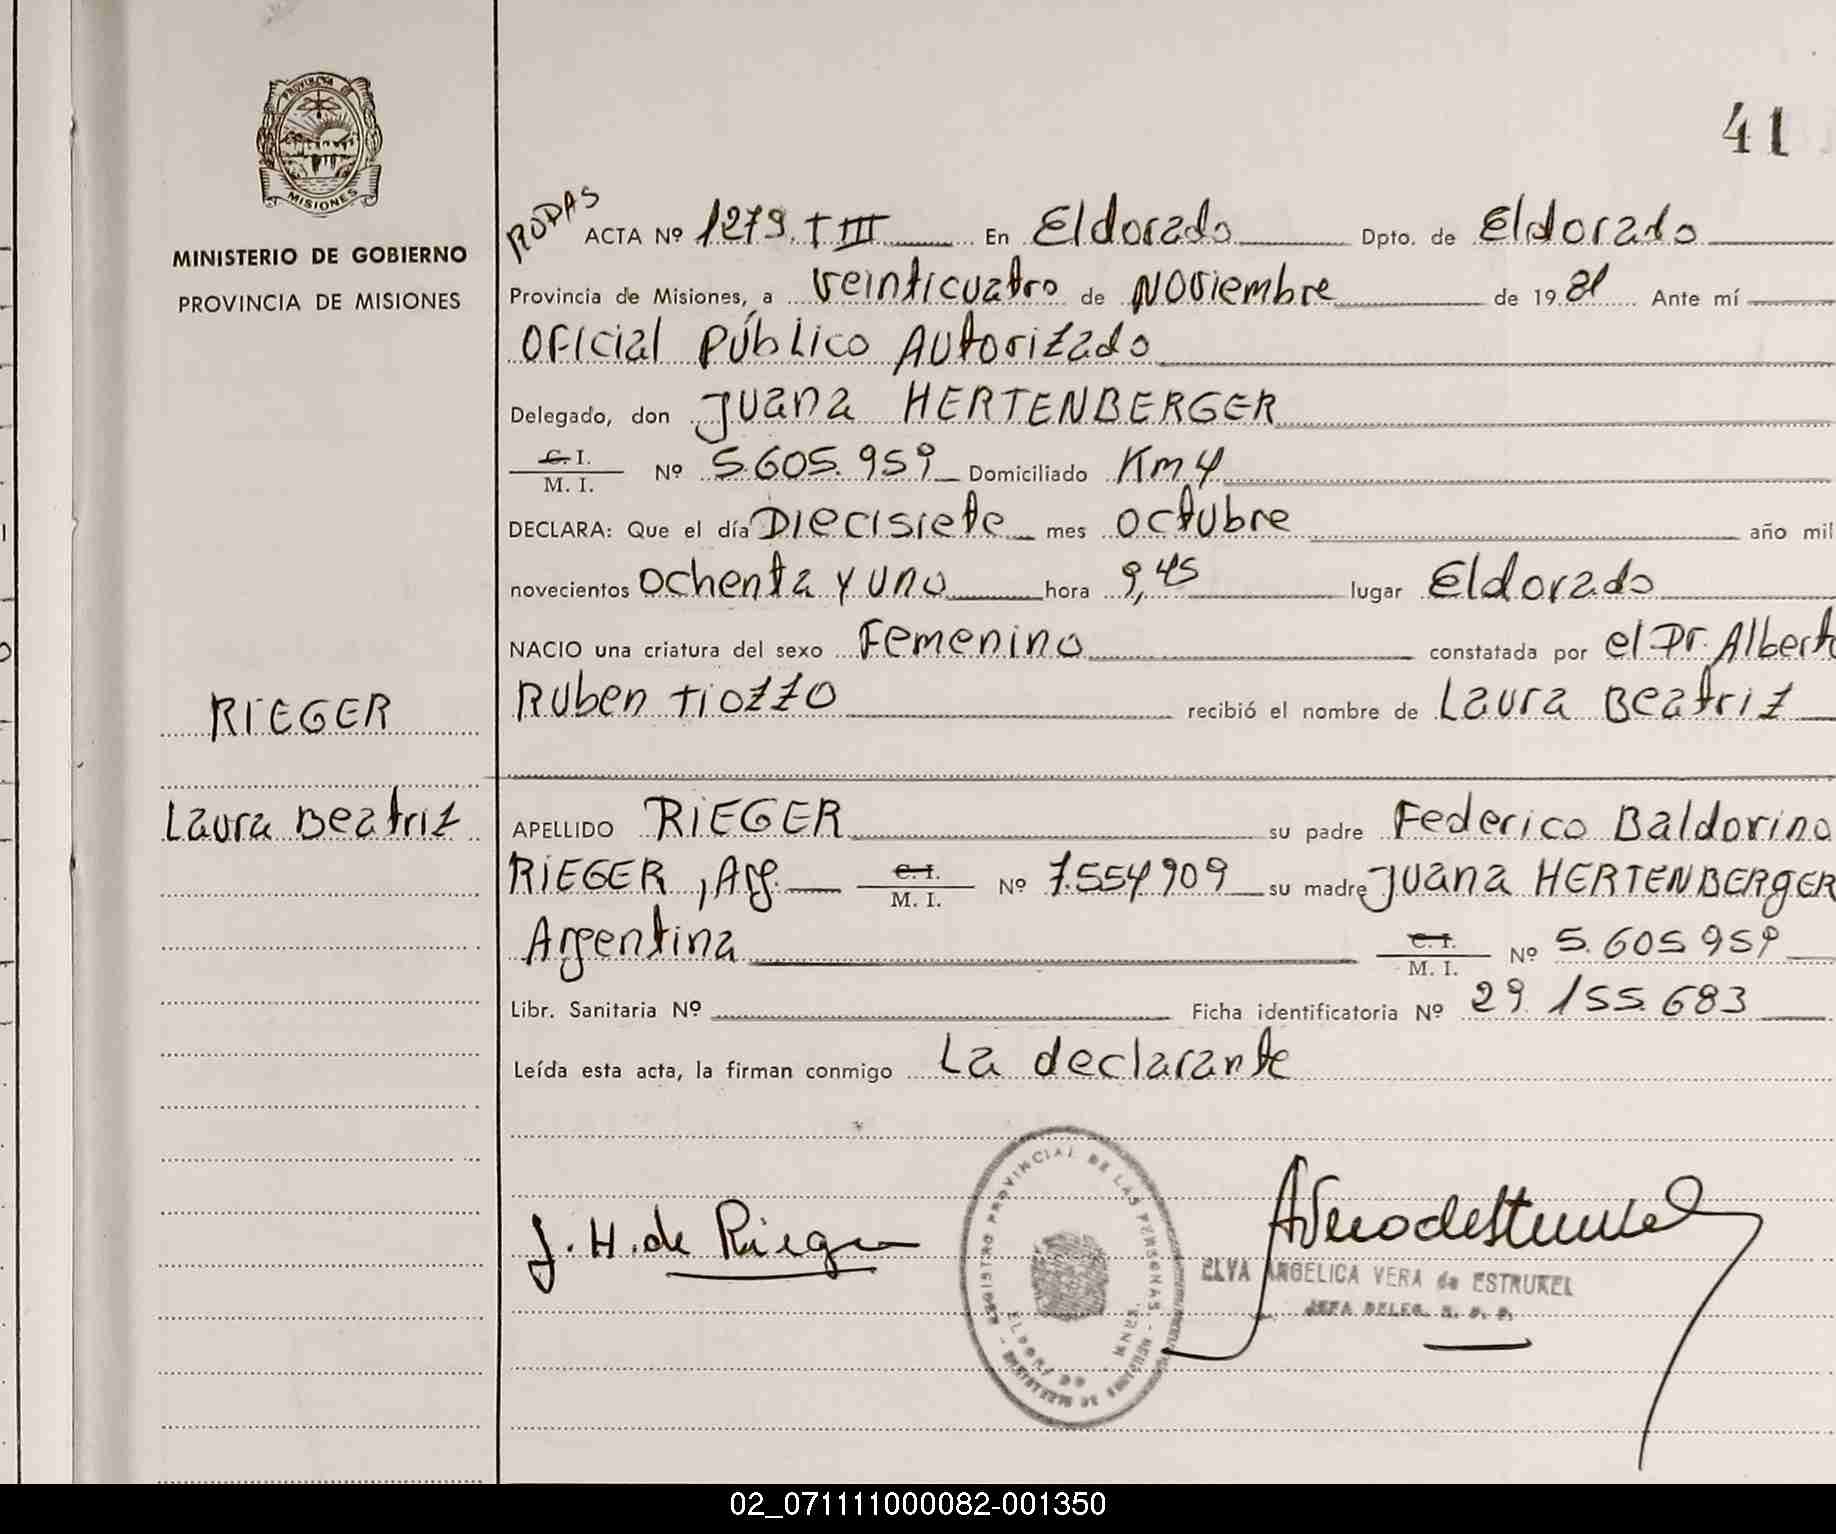 PROVINCIA DE
MISIONES
MINISTERIO DE GOBIERNO
PROVINCIA DE MISIONES
RIEGER
Laura Beatriz
41
RODAS
ACTA Nº 1279. T III En Eldorado Dpto. de Eldorado
Provincia de Misiones, a veinticuatro de Noviembre de 19 81 Ante mí
Oficial Público Autorizado
Delegado, don Juana HERTENBERGER
C. I.
M. I. Nº 5.605.959 Domiciliado Km 4
DECLARA: Que el día Diecisiete mes octubre año mil
novecientos ochenta y uno hora 9,45 lugar Eldorado
NACIO una criatura del sexo Femenino constatada por el Dr. Alberto
Ruben Tiozzo recibió el nombre de Laura Beatriz
APELLIDO RIEGER su padre Federico Baldorino
RIEGER, Arg. C. I. M. I. Nº 7.554 909 su madre Juana HERTENBERGER
Argentina C. I. M. I. Nº 5.605 959
Libr. Sanitaria Nº Ficha identificatoria Nº 29.155.683
Leída esta acta, la firman conmigo La declarante
J. H. de Rieger
REGISTRO PROVINCIAL DE LAS PERSONAS
ELDORADO
ELVA ANGELICA VERA de ESTRUKEL
JEFA DELEG. R. P. P.
02_071111000082-001350